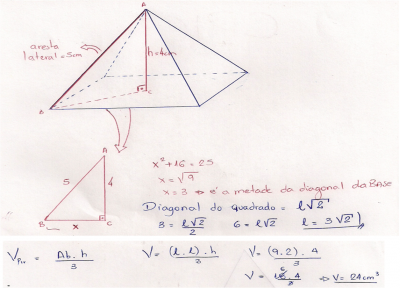 A
aresta
lateral = 5cm
h=4cm
B
C
A
5
4
B
x
C
x² + 16 = 25
x = √9
x = 3 ⇒ é a metade da diagonal da BASE
Diagonal do quadrado = l√2
3 = l√2/2 6 = l√2 l = 3√2
V_Pir = Ab.h/3 V = (l.l).h/3 V = (9.2).4/3
V = 18.4/3 ⇒ V = 24cm³